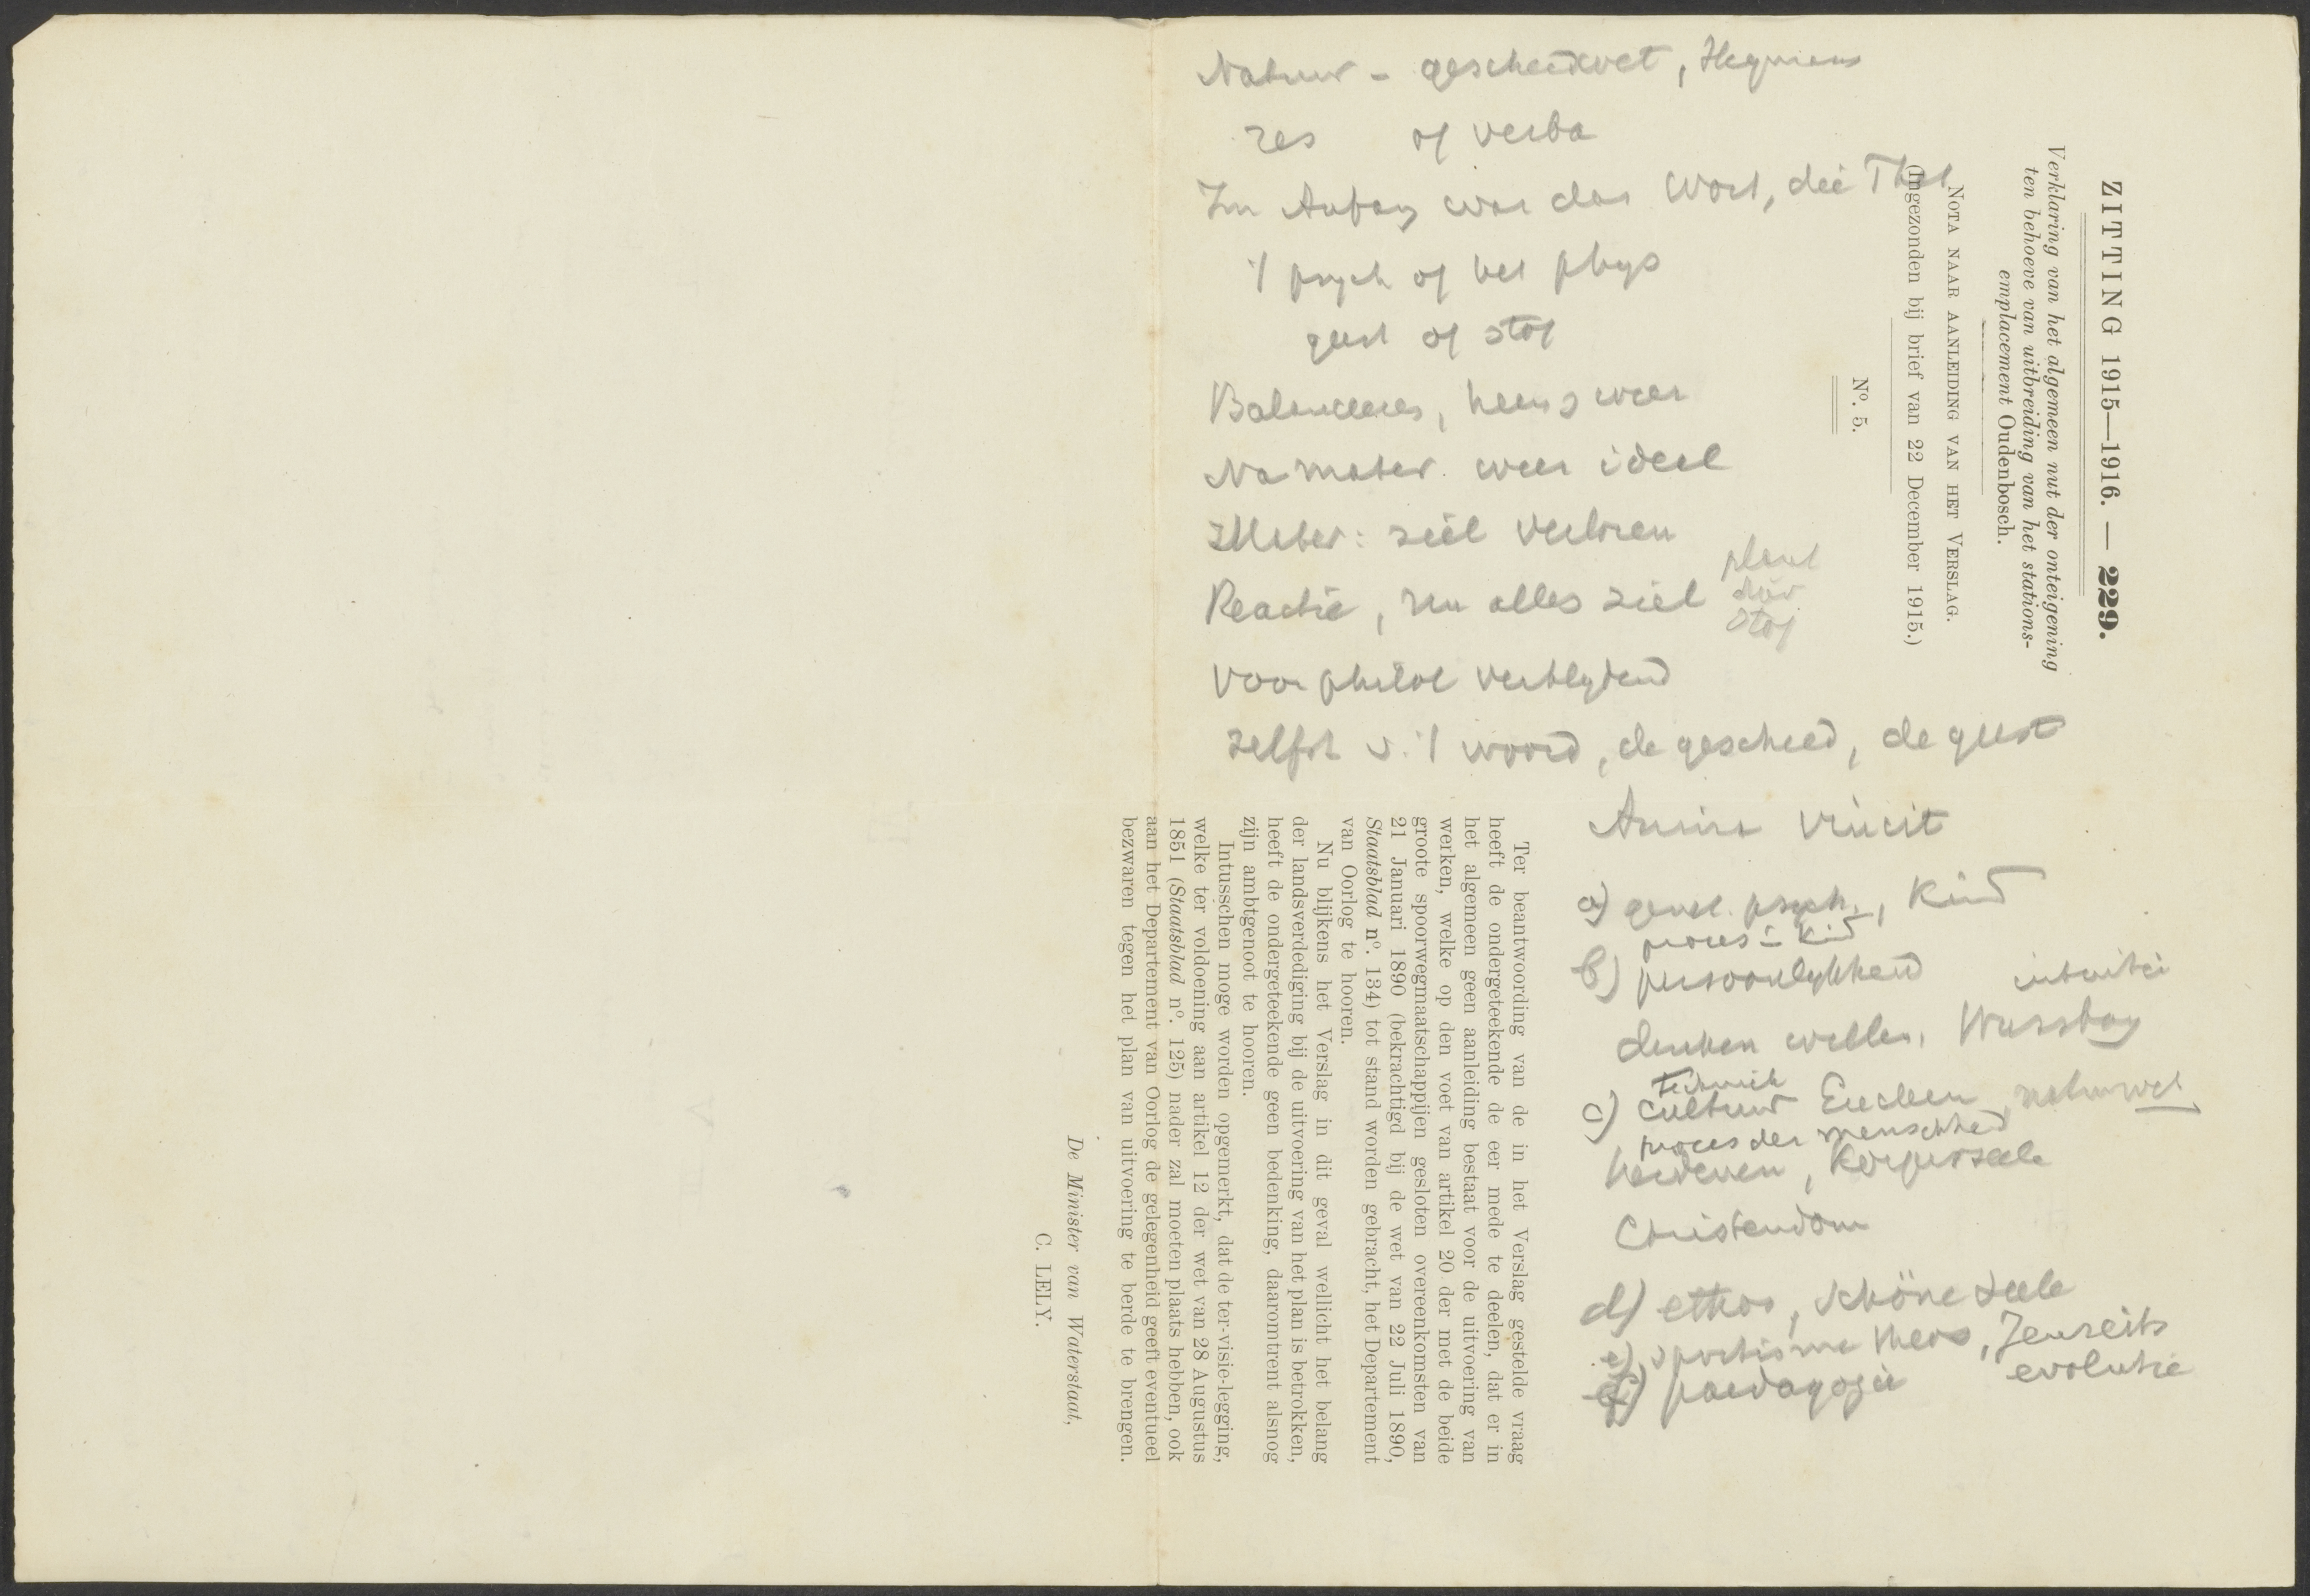 Natuur - geschiedwet, Heymans
res of verba
Im Anfang war das Wort, die That
't psych of het phys
geest of stof
Balanceeren, heen & weer
Na mater. weer ideel
Mater: ziel verloren
Reactie, nu alles ziel
plant
dier
stof
Voor philol verblydend
zelfst v. 't woord, de geschied, de geest
Anima Vincit
a) psych., Kind
proces i. kind
b) persoonlykheid intuitie
denken willen,
techniek
c) cultuur Eucken, natuurwet
proces der menschheid
heidenen, Körperseele
Christendom
d) ethos, schöne Seele
e) theos, Jenseits
evolutie
f) paedagogie
ZITTING 1915—1916. — 229.
Verklaring van het algemeen nut der onteigening
ten behoeve van uitbreiding van het stations-
emplacement Oudenbosch.
NOTA NAAR AANLEIDING VAN HET VERSLAG.
(Ingezonden bij brief van 22 December 1915.)
Nº. 5.
Ter beantwoording van de in het Verslag gestelde vraag
heeft de ondergeteekende de eer mede te deelen, dat er in
het algemeen geen aanleiding bestaat voor de uitvoering van
werken, welke op den voet van artikel 20 der met de beide
groote spoorwegmaatschappijen gesloten overeenkomsten van
21 Januari 1890 (bekrachtigd bij de wet van 22 Juli 1890,
Staatsblad nº. 134) tot stand worden gebracht, het Departement
van Oorlog te hooren.
Nu blijkens het Verslag in dit geval wellicht het belang
der landsverdediging bij de uitvoering van het plan is betrokken,
heeft de ondergeteekende geen bedenking, daaromtrent alsnog
zijn ambtgenoot te hooren.
Intusschen moge worden opgemerkt, dat de ter-visie-legging,
welke ter voldoening aan artikel 12 der wet van 28 Augustus
1851 (Staatsblad nº. 125) nader zal moeten plaats hebben, ook
aan het Departement van Oorlog de gelegenheid geeft eventueel
bezwaren tegen het plan van uitvoering te berde te brengen.
De Minister van Waterstaat,
C. LELY.